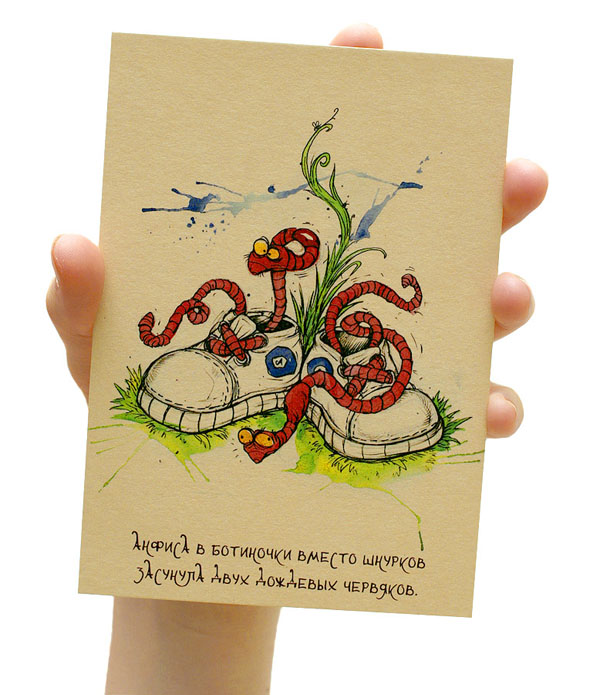 Анфиса в ботиночки вместо шнурков
засунула двух дождевых червяков.